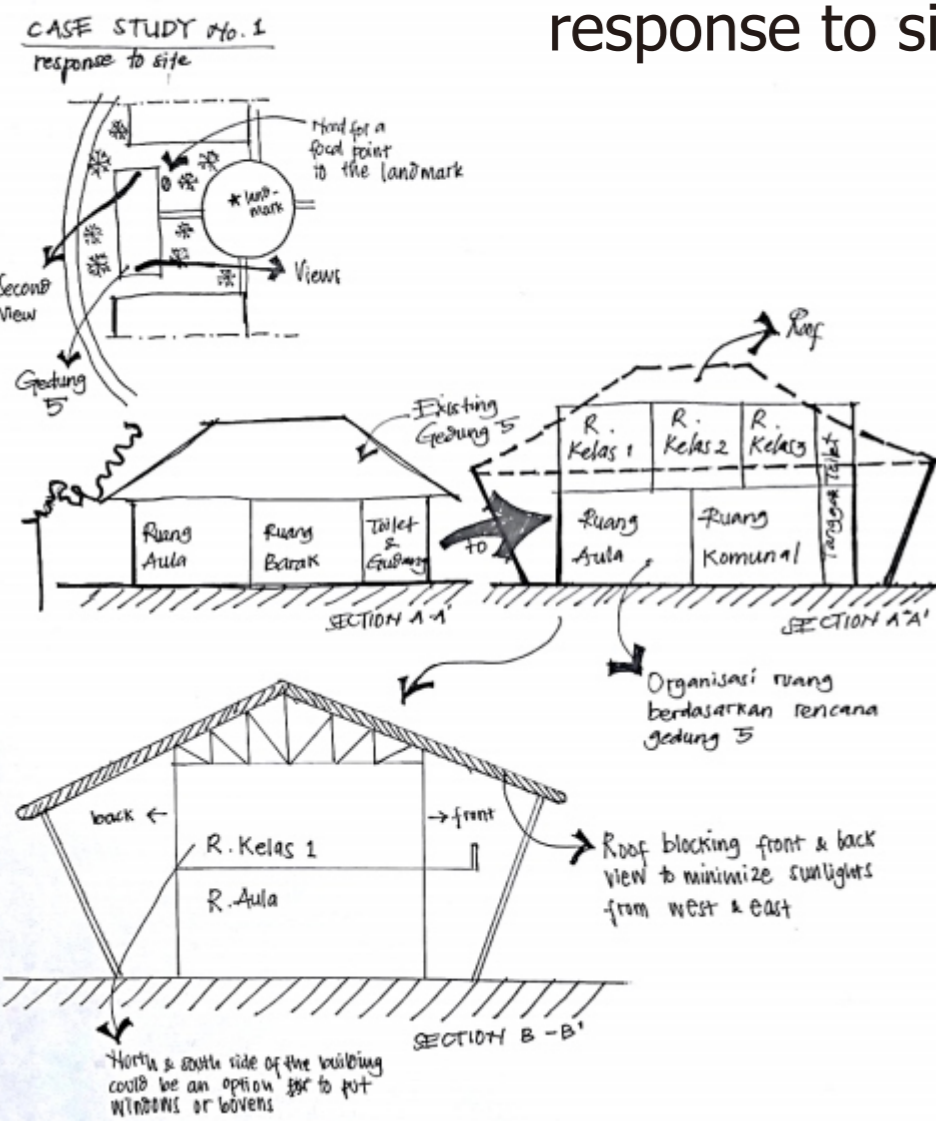 response to si
CASE STUDY No. 1
response to site
Need for a
focal point
to the landmark
★ land-
mark
Views
Second
View
Gedung
5
Roof
Existing
Gedung 5
Ruang
Aula
Ruang
Barak
Toilet
&
Gudang
to
R.
Kelas 1
R.
Kelas 2
R.
Kelas 3
Toilet
Tangga
Ruang
Aula
Ruang
Komunal
SECTION A-A'
SECTION A"A'
Organisasi ruang
berdasarkan rencana
gedung 5
back ←
→ front
R. Kelas 1
R. Aula
Roof blocking front & back
view to minimize sunlights
from west & east
SECTION B-B'
North & south side of the building
could be an option for to put
windows or bovens